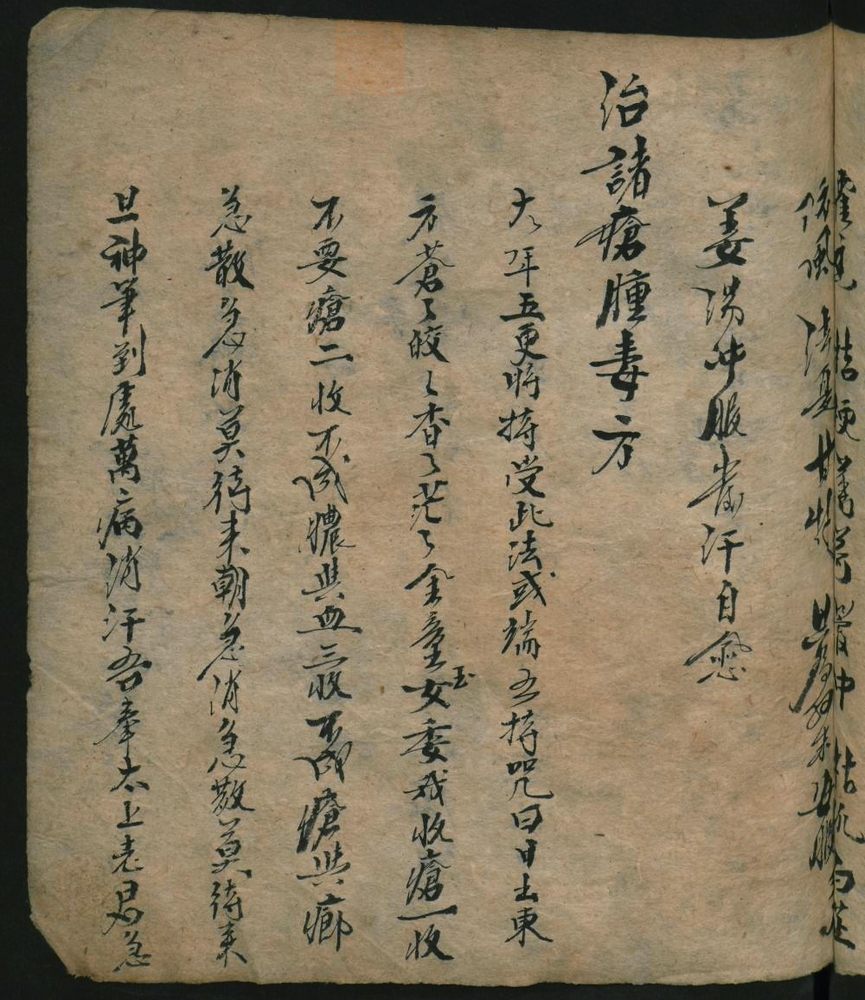 姜湯冲服發汗自愈
治諸瘡腫毒方
大年五更時持受此法或端五持咒曰日出東
方蒼々皎々杳々茫々金童玉女委我收瘡一收
不要瘡二收不成膿共血三收不成瘡共癤
急散急消莫待来朝急消急散莫待来
旦神筆到處萬病消汗吾奉太上老君急